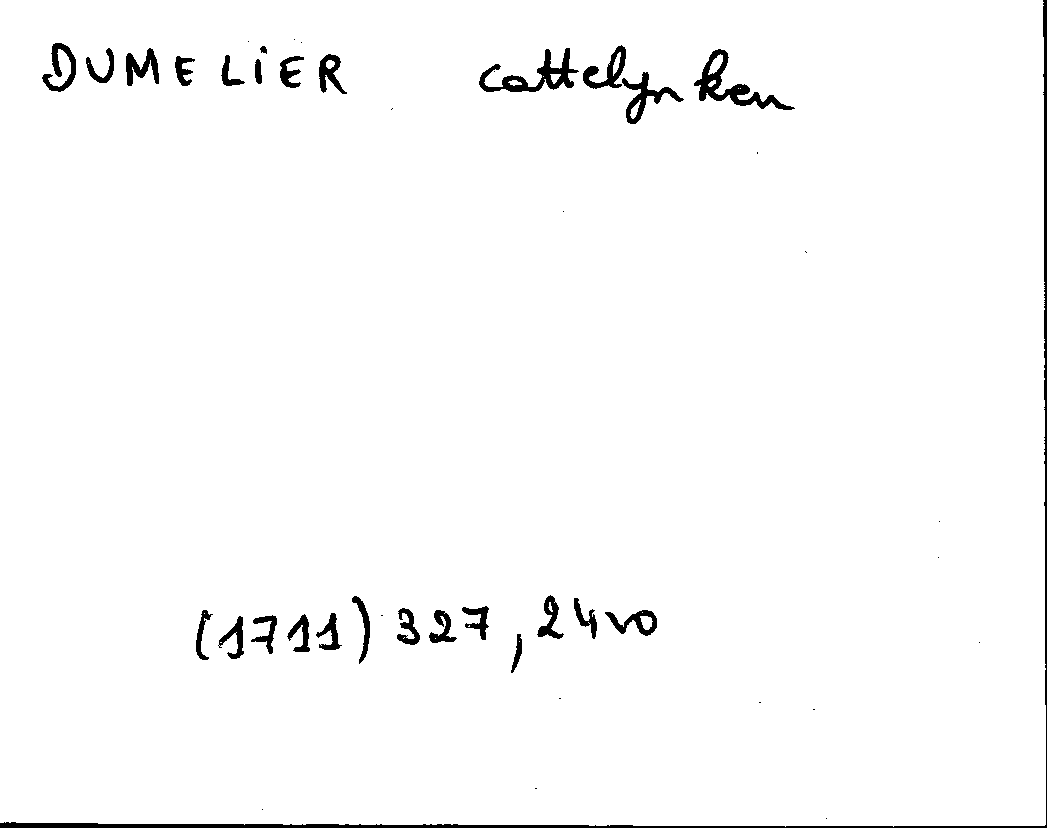 DUMELIER cattelynken
(1711) 327, 24vo